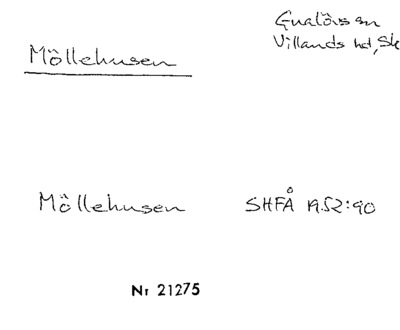 Gualövs sn
Villands hd, Sk
Möllehusen
Möllehusen SHFÅ 1952:90
Nr 21275